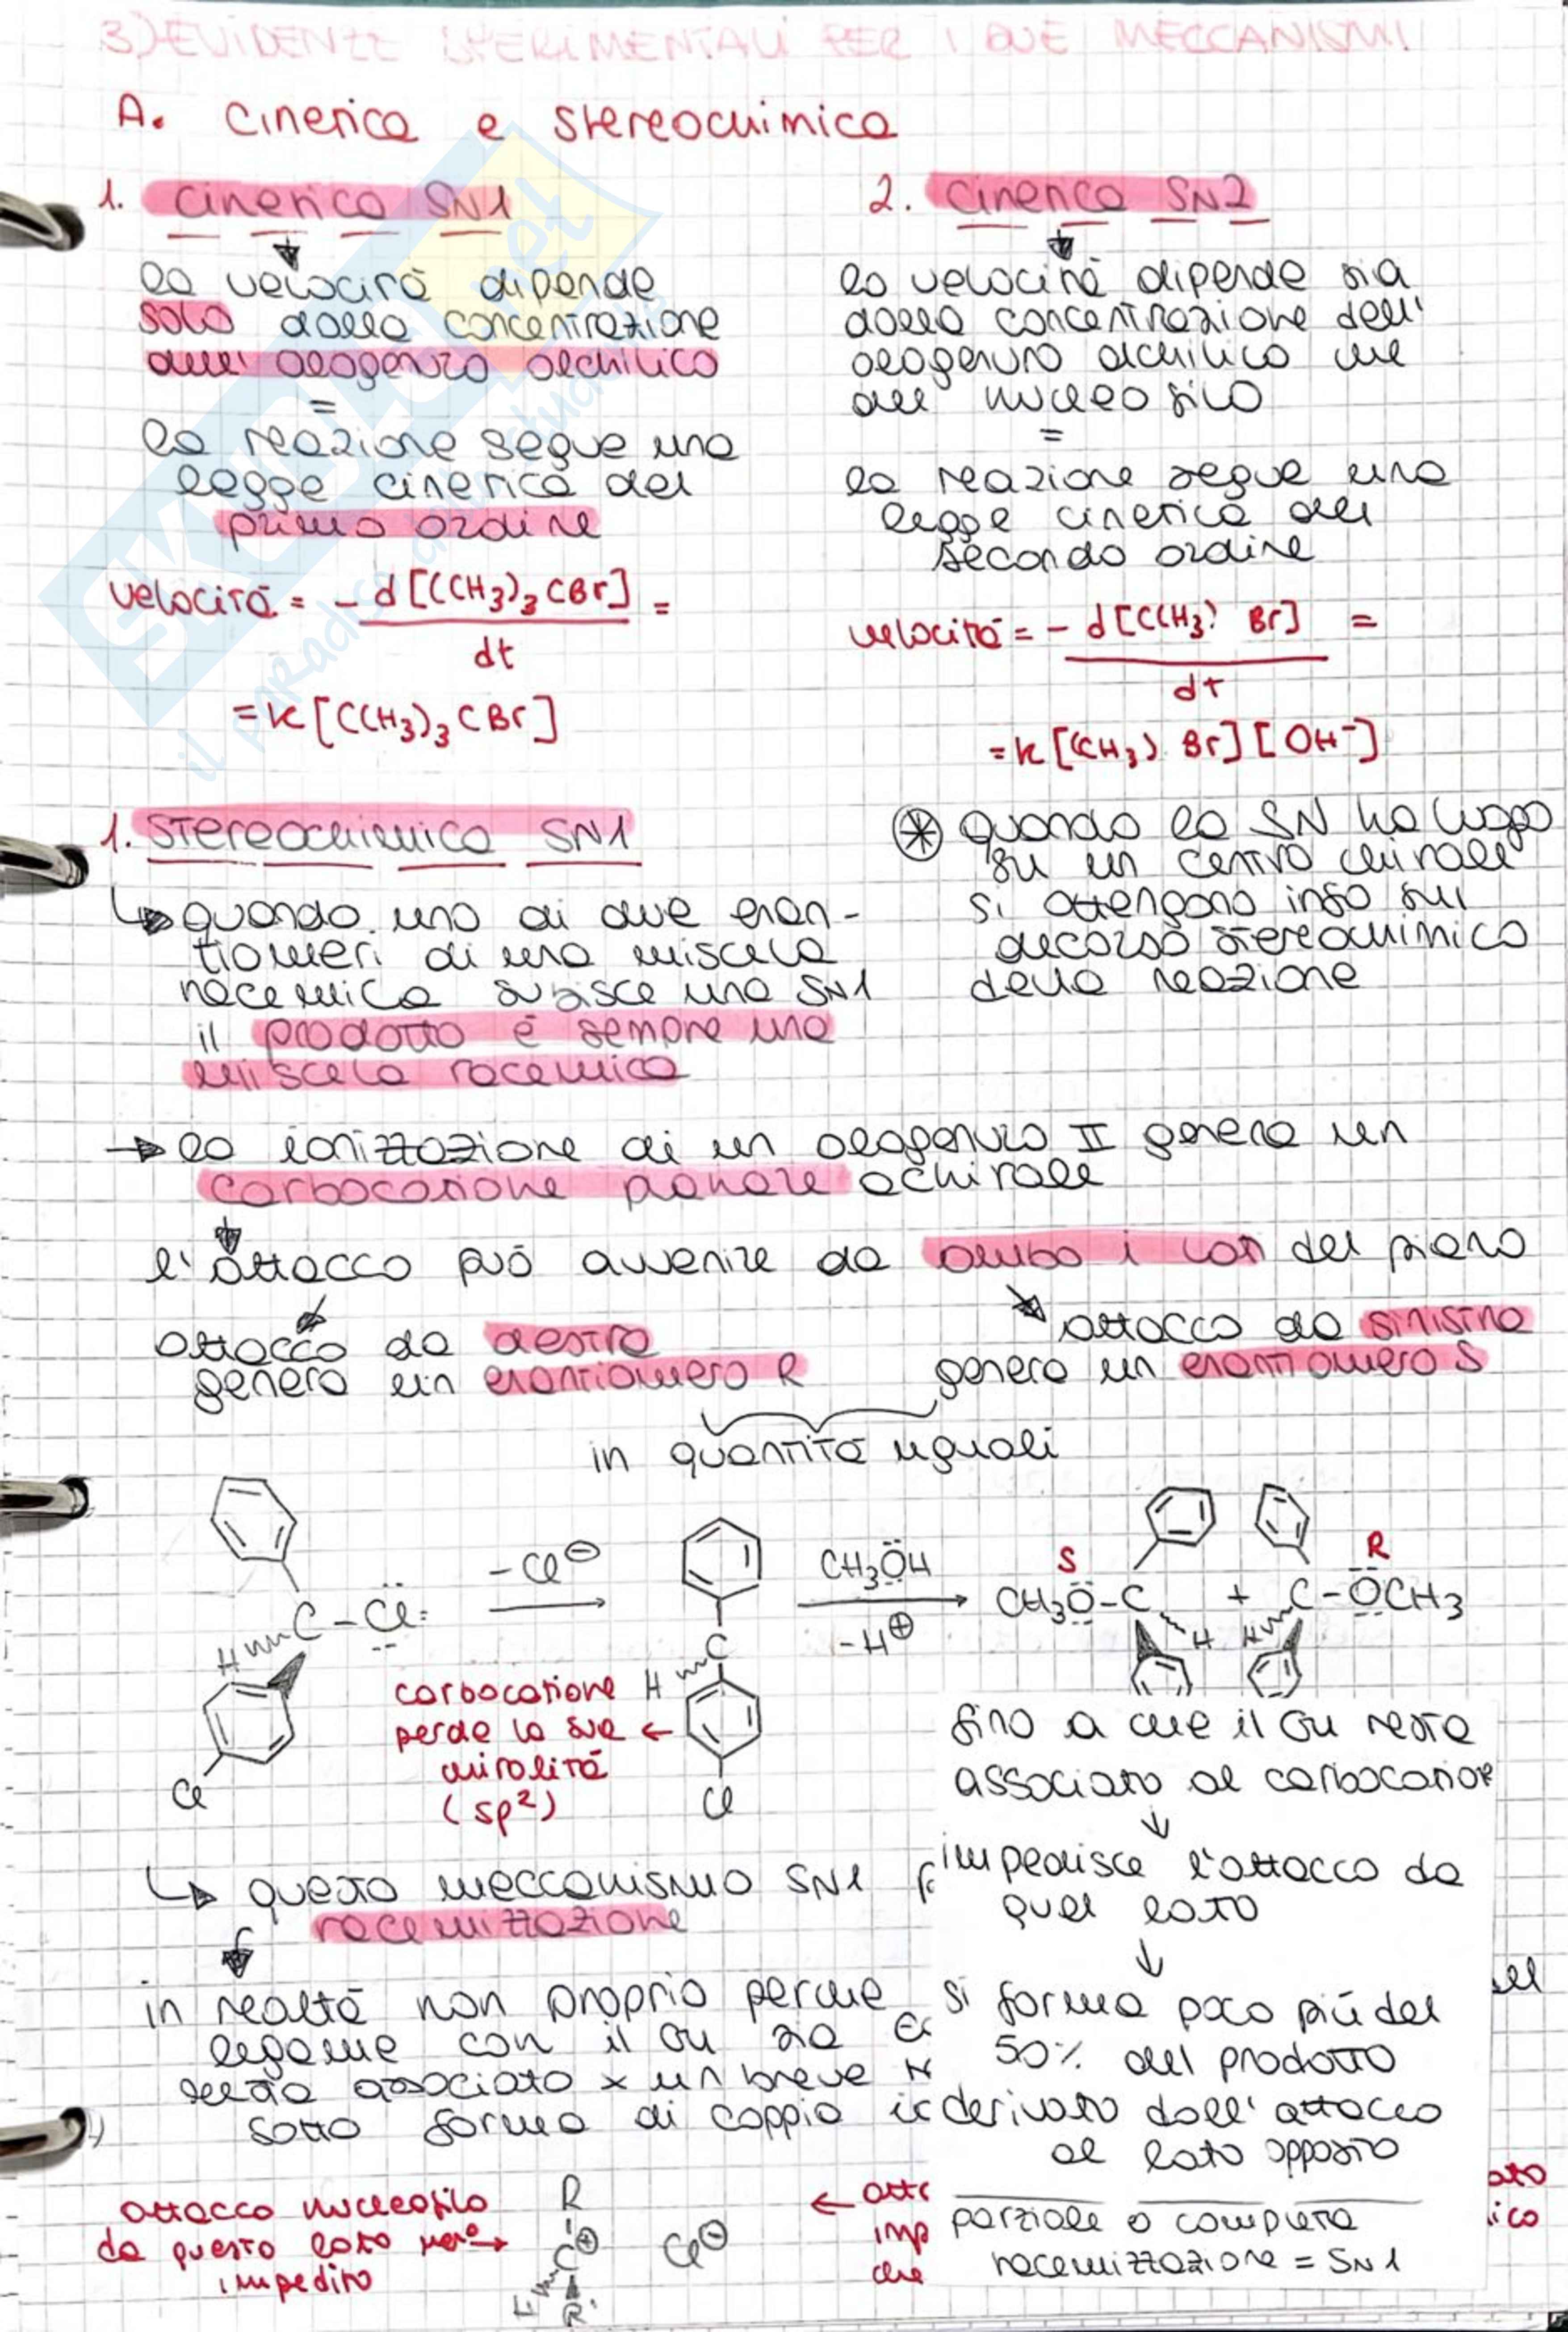 3) EVIDENZE SPERIMENTALI PER I DUE MECCANISMI
A. Cinetica e stereochimica
1. Cinetica SN1
la velocità dipende
solo dalla concentrazione
dell' alogenuro alchilico
=
la reazione segue una
legge cinetica del
primo ordine
velocità = - d[(CH3)3CBr] =
dt
= k[(CH3)3CBr]
2. Cinetica SN2
la velocità dipende sia
dalla concentrazione dell'
alogenuro alchilico che
del nucleofilo
=
la reazione segue una
legge cinetica del
secondo ordine
velocità = - d[(CH3) Br] =
dt
= k[(CH3) Br][OH⁻]
1. Stereochimica SN1
↳ quando uno di due enan-
tiomeri di una miscela
racemica subisce una SN1
il prodotto è sempre una
miscela racemica
* quando la SN ha luogo
su un centro chirale
si ottengono info sul
decorso stereochimico
della reazione
→ la ionizzazione di un alogenuro II genera un
carbocatione planare achirale
l'attacco può avvenire da ambo i lati del piano
attacco da destra
genera un enantiomero R
attacco da sinistra
genera un enantiomero S
in quantità uguali
C-Cl:
H
Cl
-Cl⊖
C
H
Cl
carbocatione
perde la sua ←
chiralità
(sp²)
CH3ÖH
-H⊕
S
CH3Ö-C
H
+
R
H C-ÖCH3
↳ questo meccanismo SN1
racemizzazione
in realtà non proprio perche
legame con il GU sia
resta associato x un breve
sotto forma di coppia
fino a che il GU resta
associato al carbocation
↓
impedisce l'attacco da
quel lato
↓
si forma poco più del
50% del prodotto
derivato dall'attacco
al lato opposto
parziale o completa
racemizzazione = SN1
attacco nucleofilo
da questo lato →
impedito
R
C⊕
R'
Cl⊖
← atta
imp
che
ato
ico
SKUOLA.net
il paradiso